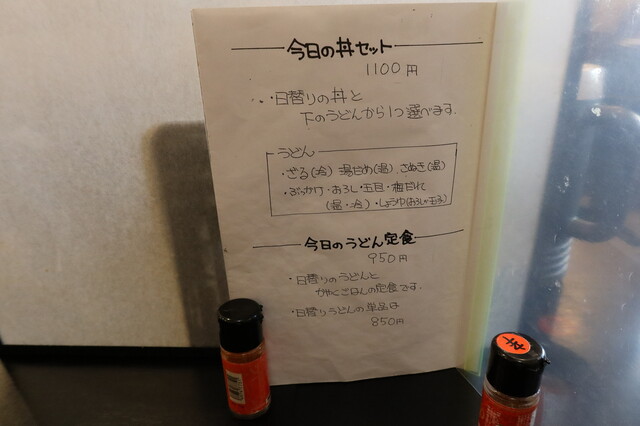 今日の丼セット
1100円
・日替りの丼と
下のうどんから1つ選べます。
うどん
・ざる(冷) 湯だめ(温) さぬき(温)
・ぶっかけ・おろし・五目・梅だれ
(温・冷)・しょうゆ
今日のうどん定食
950円
・日替りのうどんと
かやくごはんの定食です。
・日替りうどんの単品は
850円